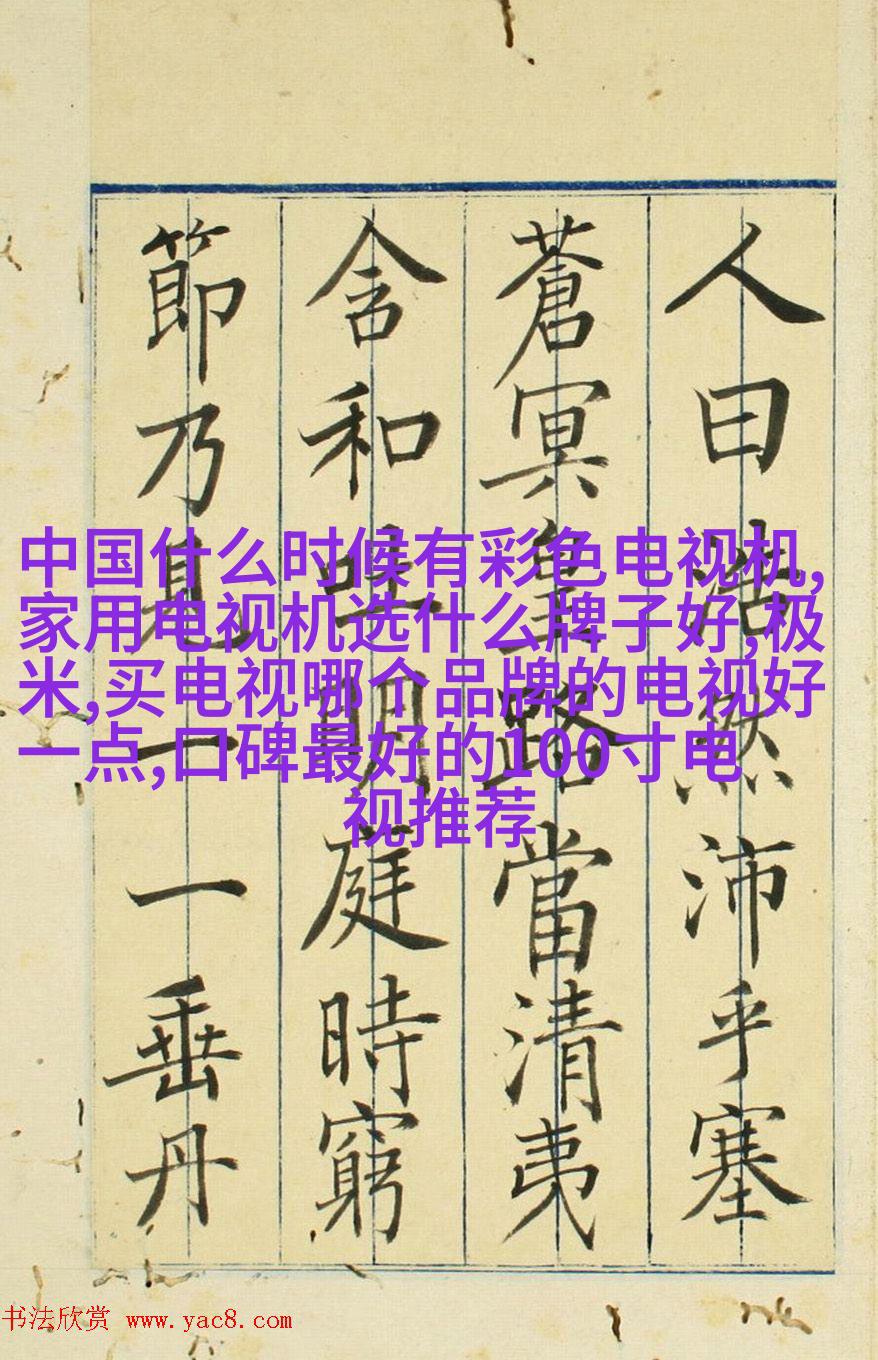 人曰浩然沛乎塞
蒼冥皇路當清夷
含和吐明庭時窮
節乃見一一垂丹
中国什么时候有彩色电视机,
家用电视机选什么牌子好,极
米,买电视哪个品牌的电视好
一点,口碑最好的100寸电
视推荐
书法欣赏 www.yac8.com